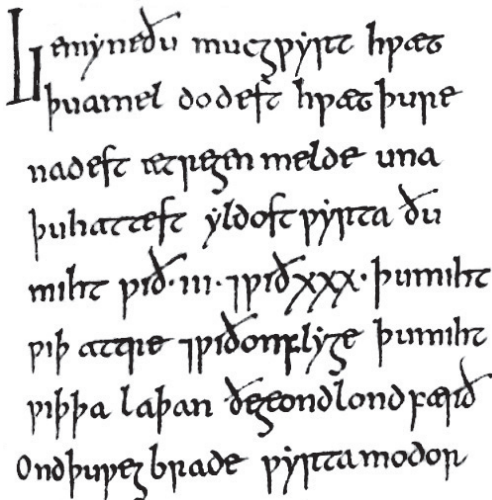 Gemẏne ðu mucgƿẏrt hƿæt
þu amel dodest hƿæt þu re
nadest æt regen melde una
þu hattest ẏldost ƿẏrta ðu
miht ƿið ·III· ⁊ ƿið XXX· þu miht
ƿiþ attre ⁊ ƿið onflẏge þu miht
ƿiþ þa laþan ðe geond lond færð
Ond þu ƿegbrade ƿẏrta modor